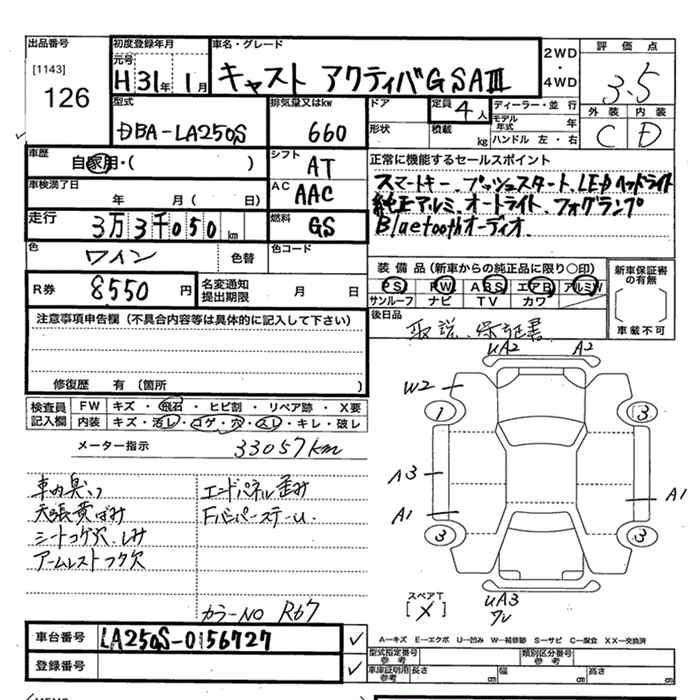 出品番号
[1143]
126
初度登録年月
元号
H 31年 1月
車名・グレード
キャスト アクティバGSAⅢ
2WD
・
4WD
評価点
3.5
外装 内装
C D
型式
DBA-LA250S
排気量又はkw
660
ドア
定員 4人
形状
積載 kg
ディーラー・並行
モデル年式 年
ハンドル 左・右
車歴
自家用・( )
シフト
AT
車検満了日
年 月( 日)
AC
AAC
走行
3万3千050km
燃料
GS
色
ワイン
色替
色コード
R券
8550円
名変通知
提出期限
月 日
正常に機能するセールスポイント
スマートキー、プッシュスタート、LEDヘッドライト
純正アルミ、オートライト、フォグランプ
Bluetoothオーディオ.
装備品(新車からの純正品に限り○印)
PS PW ABS エアB アルミW
サンルーフ ナビ TV カワ
新車保証書
の有無
車載不可
後日品
取説、保証書
注意事項申告欄(不具合内容等は具体的に記入して下さい)
修復歴 有(箇所 )
検査員
記入欄
FW キズ・飛石・ヒビ割・リペア跡・X要
内装 キズ・汚レ・コゲ・穴・スレ・キレ・破レ
メーター指示
33057km
車内臭い
天張黄ばみ
シートコゲ穴、しみ
アームレストフタ欠
エンドパネル歪み
Fバンパーステーu.
カラーNO R67
UA2
A2
W2
1
3
A3
A1
A1
3
3
UA3
ワレ
スペアT
[×]
A―キズ E―エクボ U―凹み W―補修跡 S―サビ C―腐食 XX―交換済
車台番号
LA250S-0156727
登録番号
型式指定番号
参考
類別区分番号
参考
車庫証明用
参考
長さ
幅
高さ